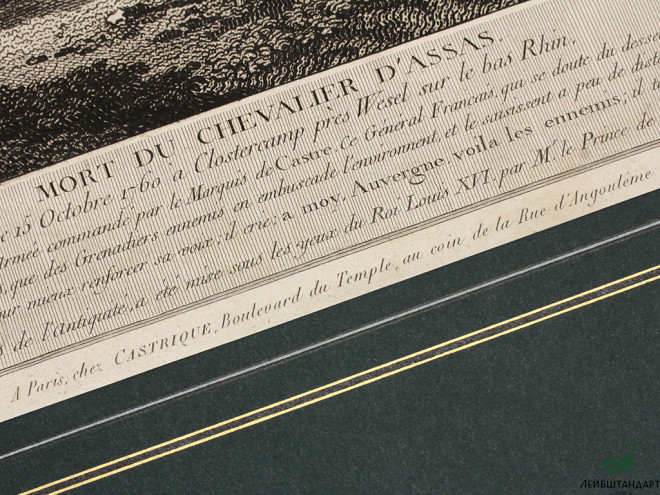 MORT DU CHEVALIER D'ASSAS.
15 Octobre 1760 à Clostercamp près Wesel sur le bas Rhin,
Armée commandé par le Marquis de Castre, Ce Général Francais, qui se doute du
que des Grenadiers ennemis en embuscade l'environnent, et le saisissent a peu de
mieux renforcer sa voix, il crie; a moy, Auvergne, voila les ennemis; il
de l'antiquité, a été mise sous les yeux du Roi Louis XVI. par Mr. le Prince de
A Paris, chez CASTRIQUE, Boulevard du Temple, au coin de la Rue d'Angoulême
ЛЕЙБШТАНДАРТ